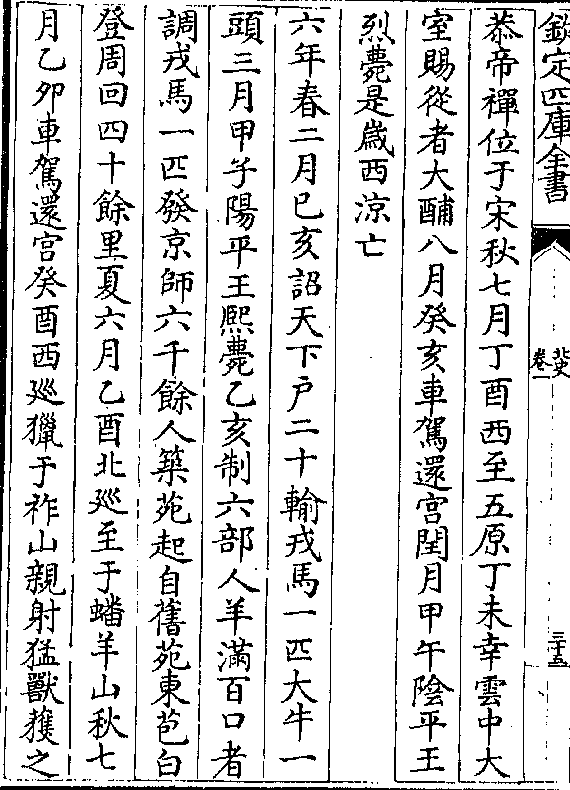 欽定四庫全書
北史
卷一
三十五
恭帝禪位于宋秋七月丁酉西至五原丁未幸雲中大
室賜從者大酺八月癸亥車駕還宫閏月甲午陰平王
烈薨是嵗西涼亡
六年春二月己亥詔天下户二十輸戎馬一匹大牛一
頭三月甲子陽平王熙薨乙亥制六部人羊滿百口者
調戎馬一匹發京師六千餘人築苑起自舊苑東苞白
登周回四十餘里夏六月乙酉北廵至于蟠羊山秋七
月乙卯車駕還宫癸酉西廵獵于祚山親射猛獸獲之